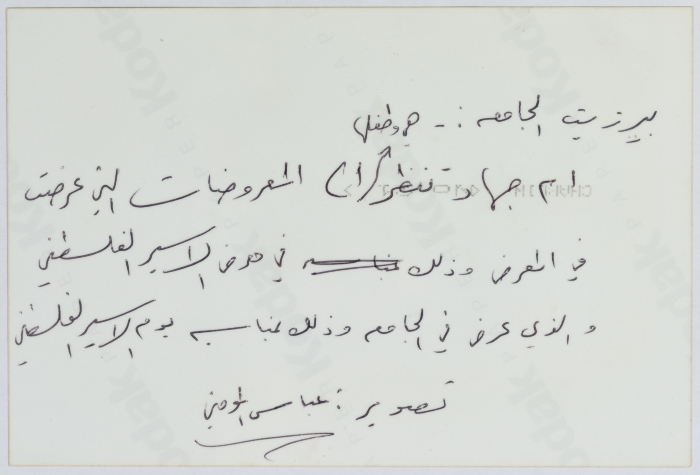 بيرزيت الجامعه :- هي وطفلها
ام جهاد تنظر الى المعروضات التي عرضت
في المعرض وذلك بمناسبه في معرض الاسير الفلسطيني
والذي عرض في الجامعه وذلك بمناسبه يوم الاسير الفلسطيني
تصوير : عباس المومني
Kodak
Kodak
Kodak
Kodak